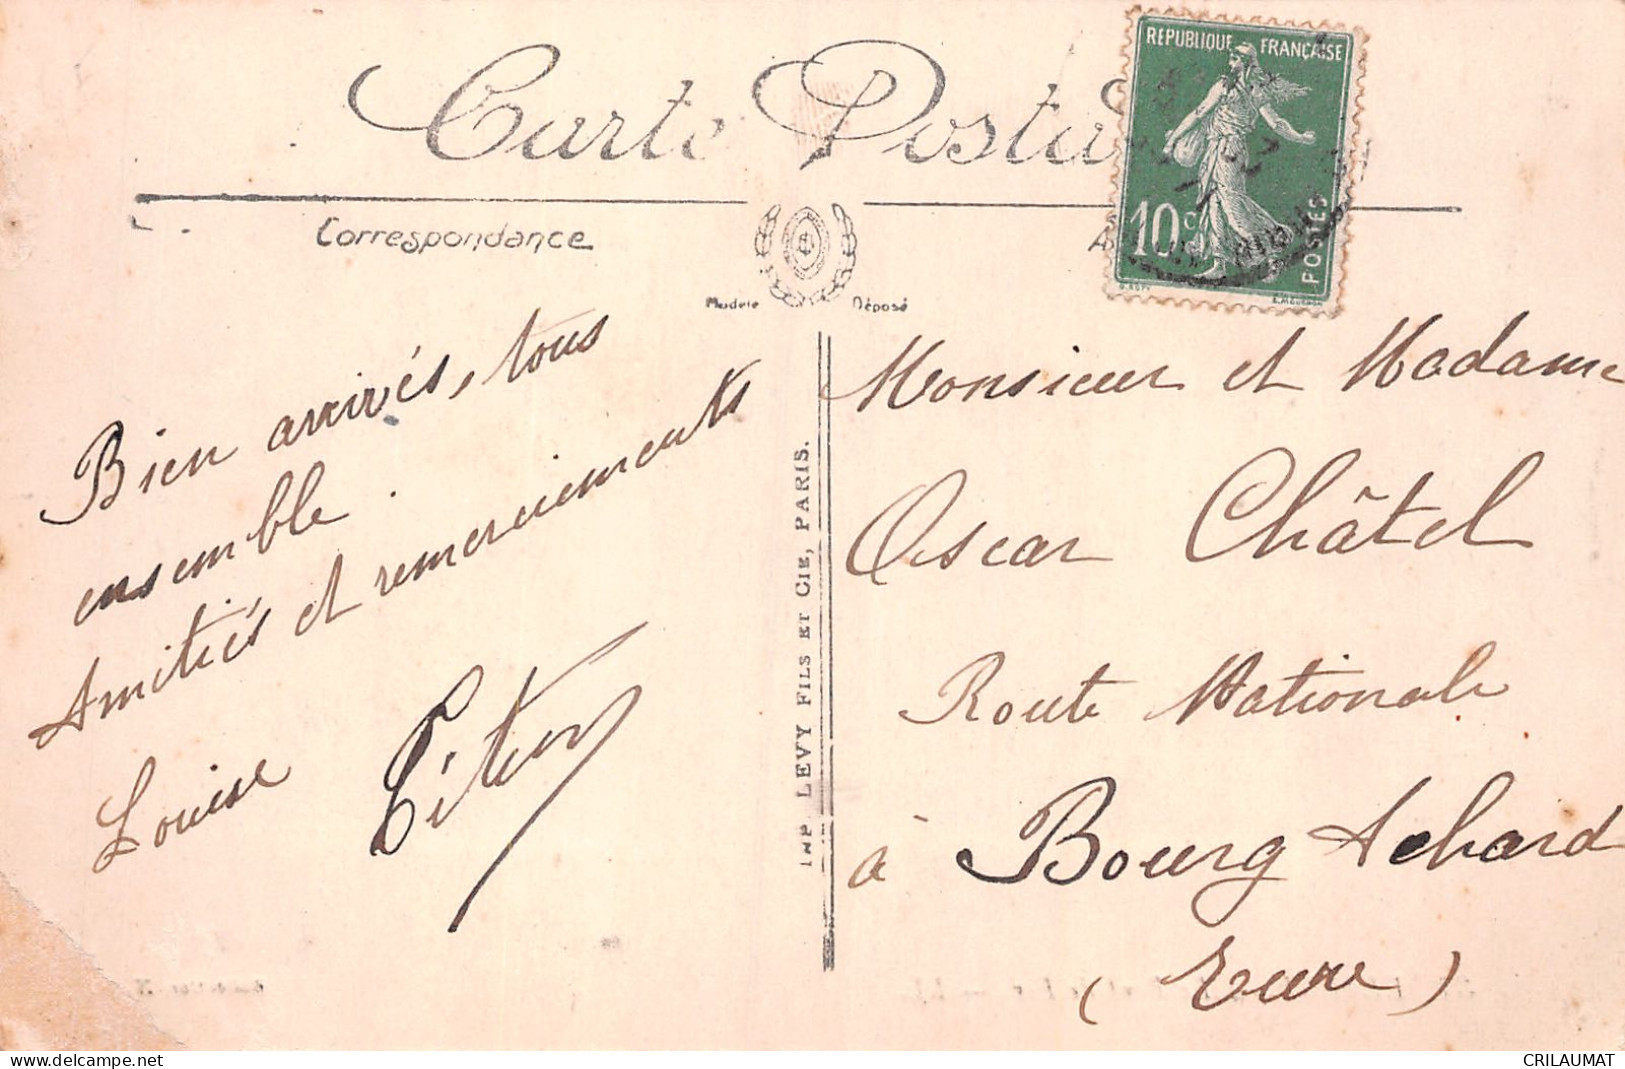 Carte Posta
RÉPUBLIQUE FRANÇAISE
10c
POSTES
Correspondance
Modèle Déposé
Bien arrivés, tous
ensemble.
Amitiés et remerciements
Louise
IMP. LEVY FILS ET CIE, PARIS.
Monsieur et Madame
Oscar Châtel
Route Nationale
à Bourg Achard
(Eure)
www.delcampe.net
CRILAUMAT